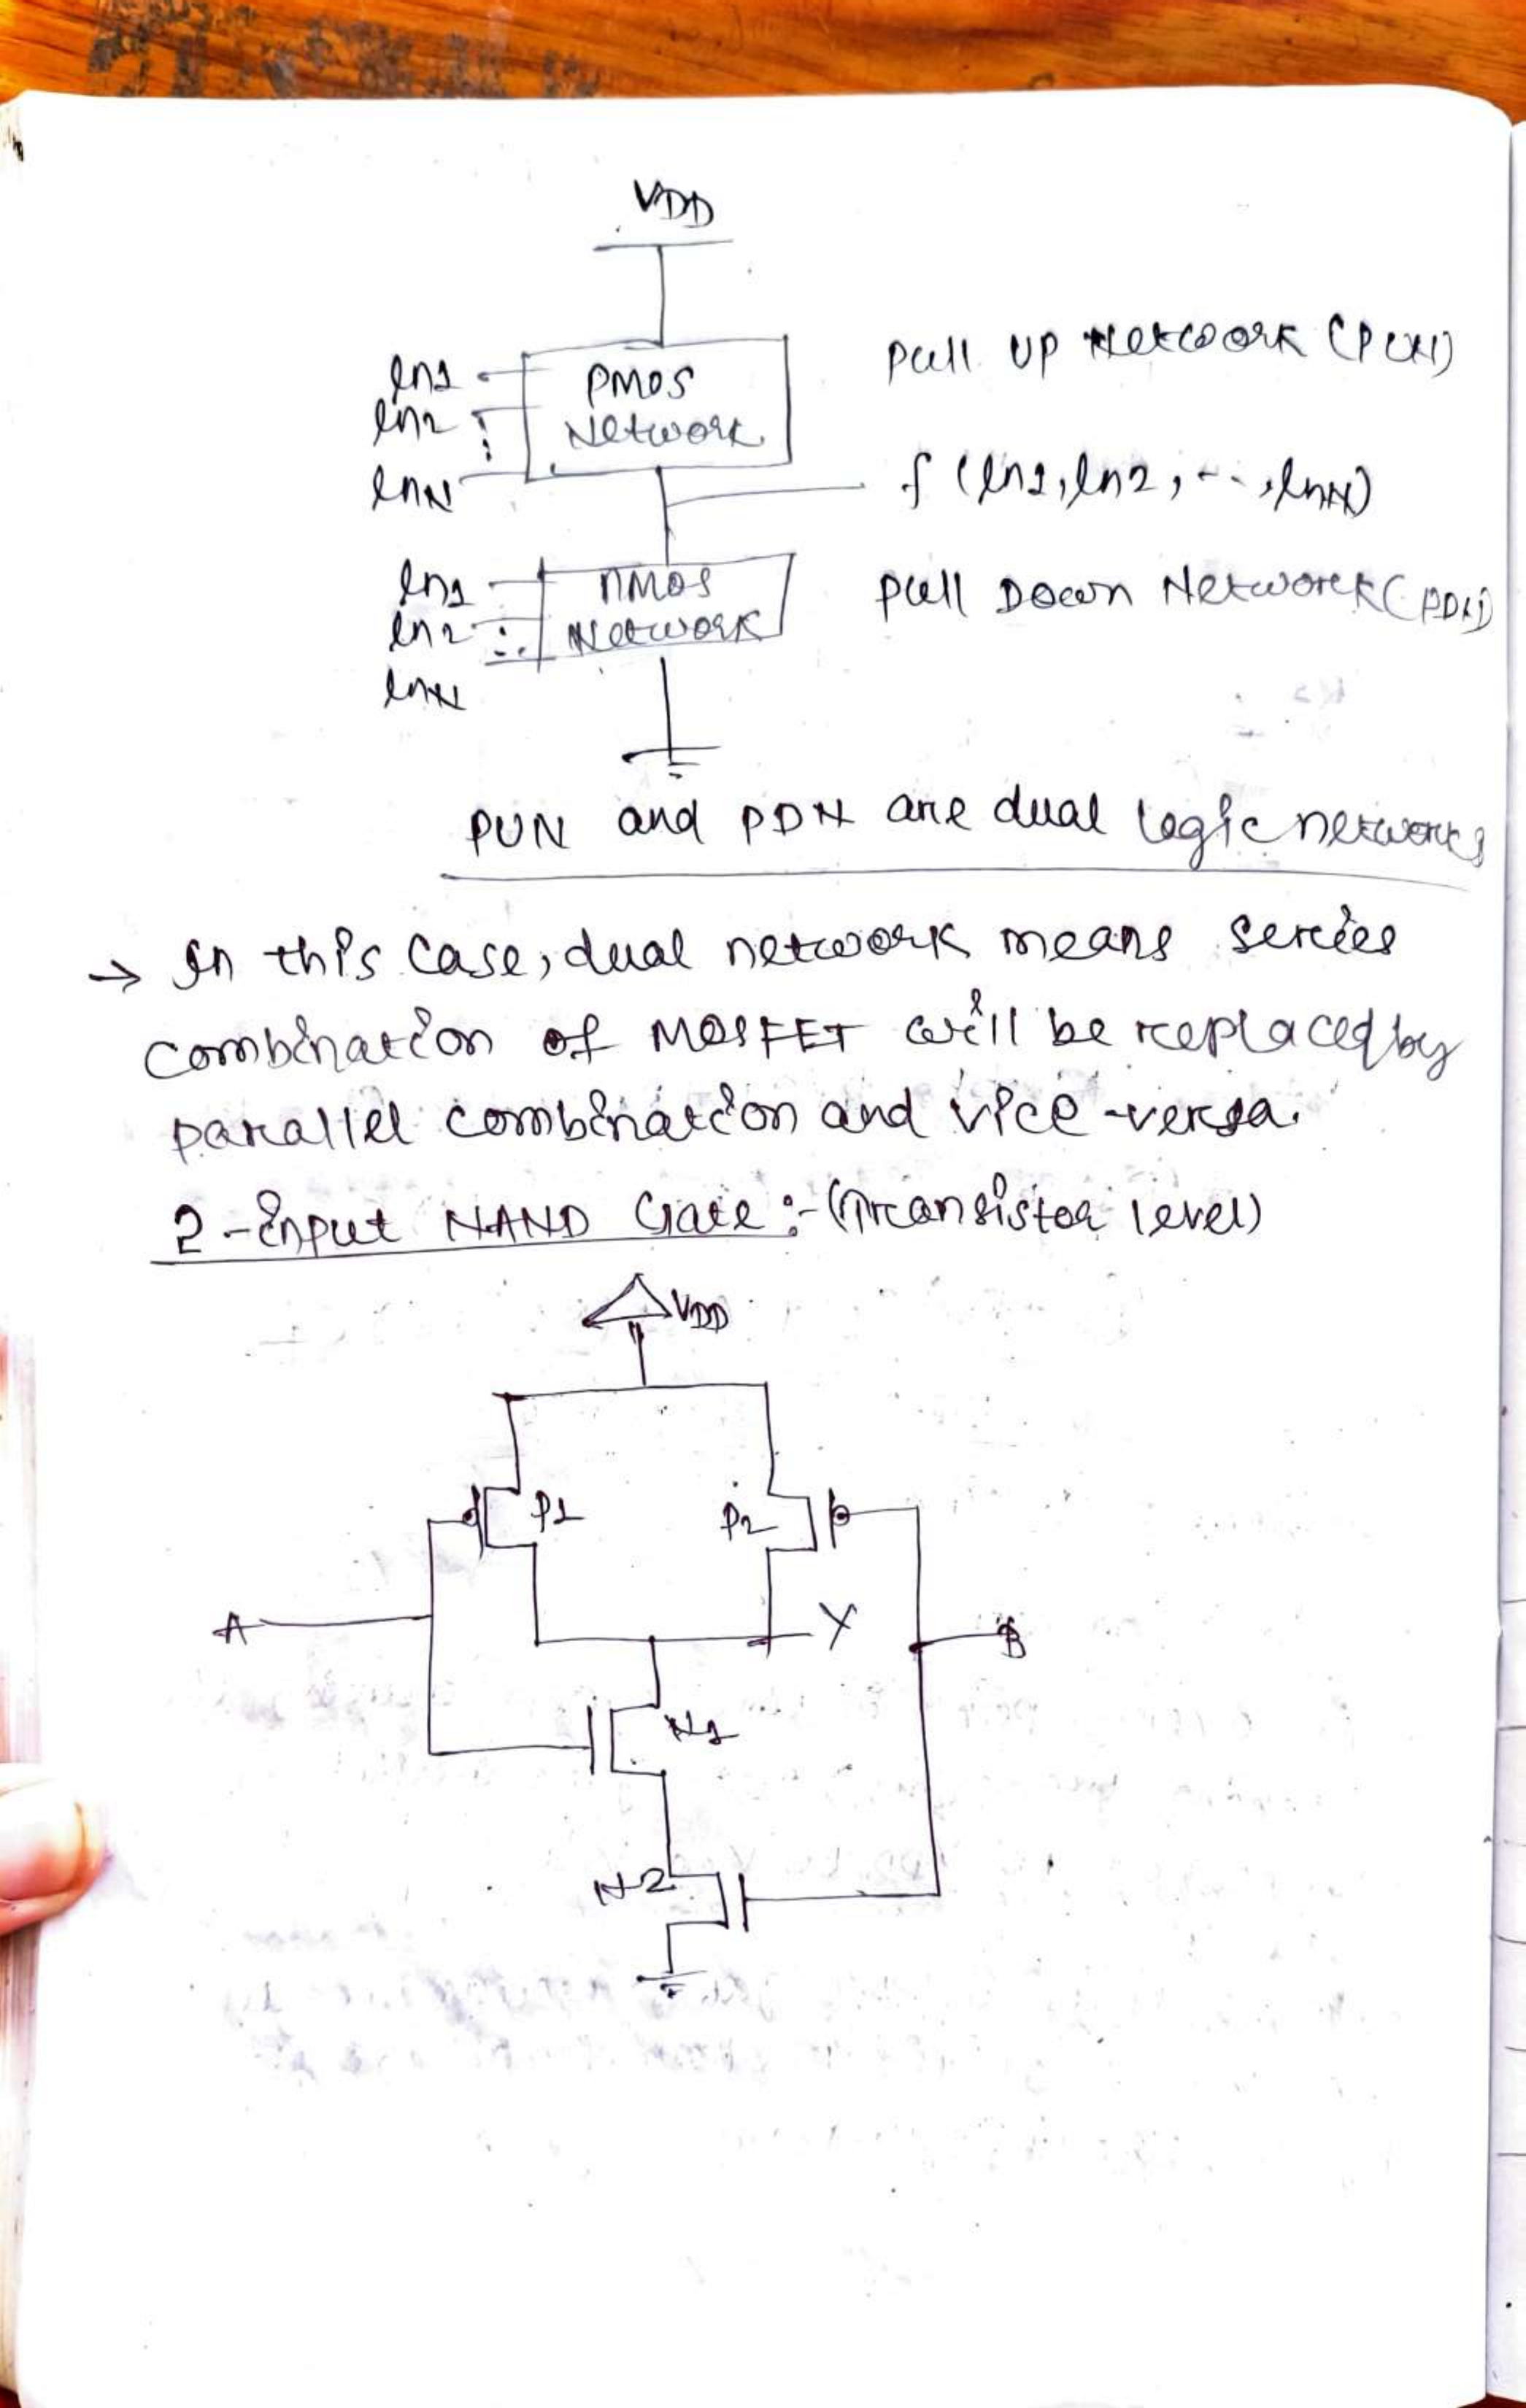 VDD
Pull Up Network (PUN)
In1
In2
InN
PMOS
Network
f (In1, In2, --, InN)
In1
In2
InN
nMOS
Network
Pull Down Network (PDN)
PUN and PDN are dual logic networks
→ In this case, dual network means series
combination of MOSFET will be replaced by
parallel combination and vice-versa.
2-input NAND Gate :- (Transistor level)
VDD
P1
P2
A
Y
B
N1
N2